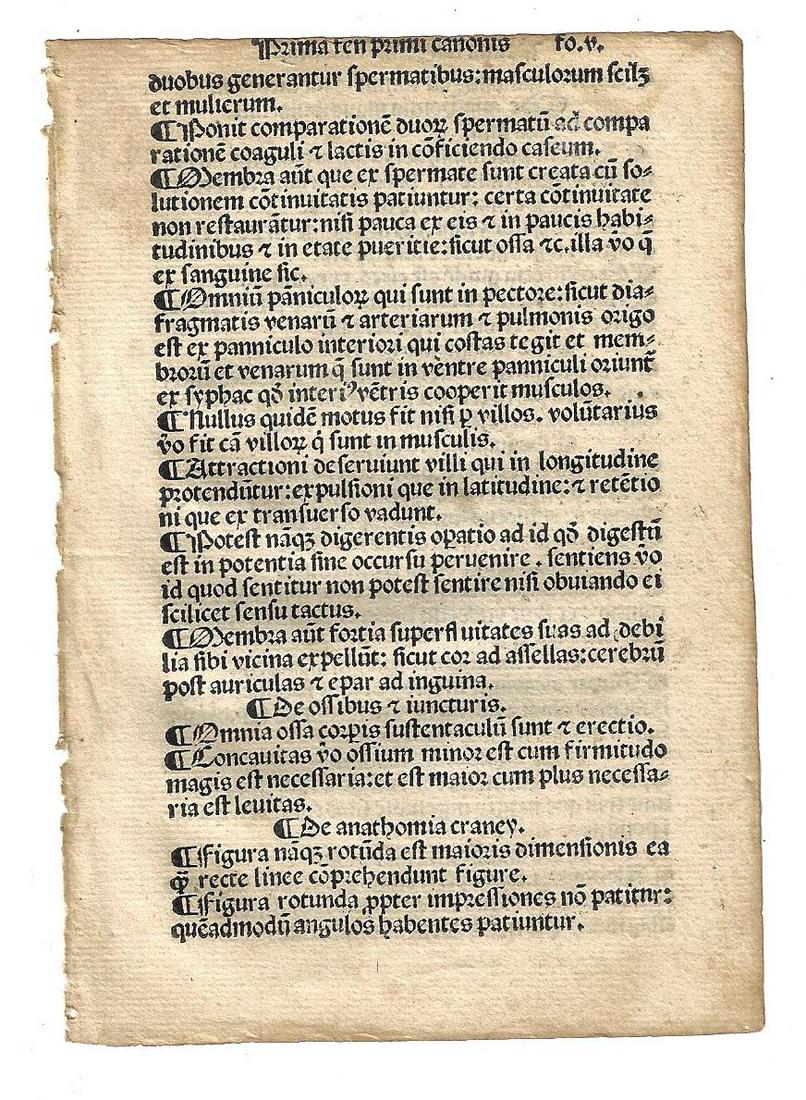 Prima fen primi canonis fo.v.
duobus generantur spermatibus:masculorum scilꝫ
et mulierum.
¶Ponit comparationē duoꝝ spermatū ad compa
rationē coaguli ⁊ lactis in cōficiendo caseum.
¶Membra aūt que ex spermate sunt creata cū so⸗
lutionem cōtinuitatis patiuntur: certa cōtinuitate
non restaurātur:nisi pauca ex eis ⁊ in paucis habi⸗
tudinibus ⁊ in etate pueritie:sicut ossa ⁊c.illa v̄o q̄
ex sanguine sic.
¶Omniū pāniculoꝝ qui sunt in pectore:sicut dia⸗
fragmatis venarū ⁊ arteriarum ⁊ pulmonis origo
est ex panniculo interiori qui costas tegit et mem⸗
brorū et venarum q̄ sunt in ventre panniculi oriunt̄
ex syphac qđ interiꝰ vētris cooperit musculos.
¶Nullus quidē motus fit nisi ꝑ villos. volūtarius
v̄o fit cā villoꝝ q̇ sunt in musculis.
¶Attractioni deseruiunt villi qui in longitudine
protendūtur:expulsioni que in latitudine:⁊ retētio
ni que ex transuerso vadunt.
¶Potest nāqꝫ digerentis oꝑatio ad id qđ digestū
est in potentia sine occursu peruenire . sentiens v̄o
id quod sentitur non potest sentire nisi obuiando ei
scilicet sensu tactus.
¶Membra aūt fortia superfluitates suas ad debi
lia sibi vicina expellūt: sicut cor ad assellas:cerebrū
post auriculas ⁊ epar ad inguina.
¶De ossibus ⁊ iuncturis.
¶Omnia ossa corꝑis sustentaculū sunt ⁊ erectio.
¶Concauitas v̄o ossium minor est cum firmitudo
magis est necessaria:et est maior cum plus necessa⸗
ria est leuitas.
¶De anathomia craney.
¶Figura nāqꝫ rotūda est maioris dimensionis ea
qͣ̄ recte linee cōprehendunt figure.
¶Figura rotunda ꝓpter impressiones nō patitur:
quēadmodū angulos habentes patiuntur.